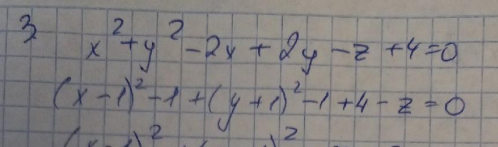 3) x² + y² - 2x + 2y - z + 4 = 0
(x - 1)² - 1 + (y + 1)² - 1 + 4 - z = 0